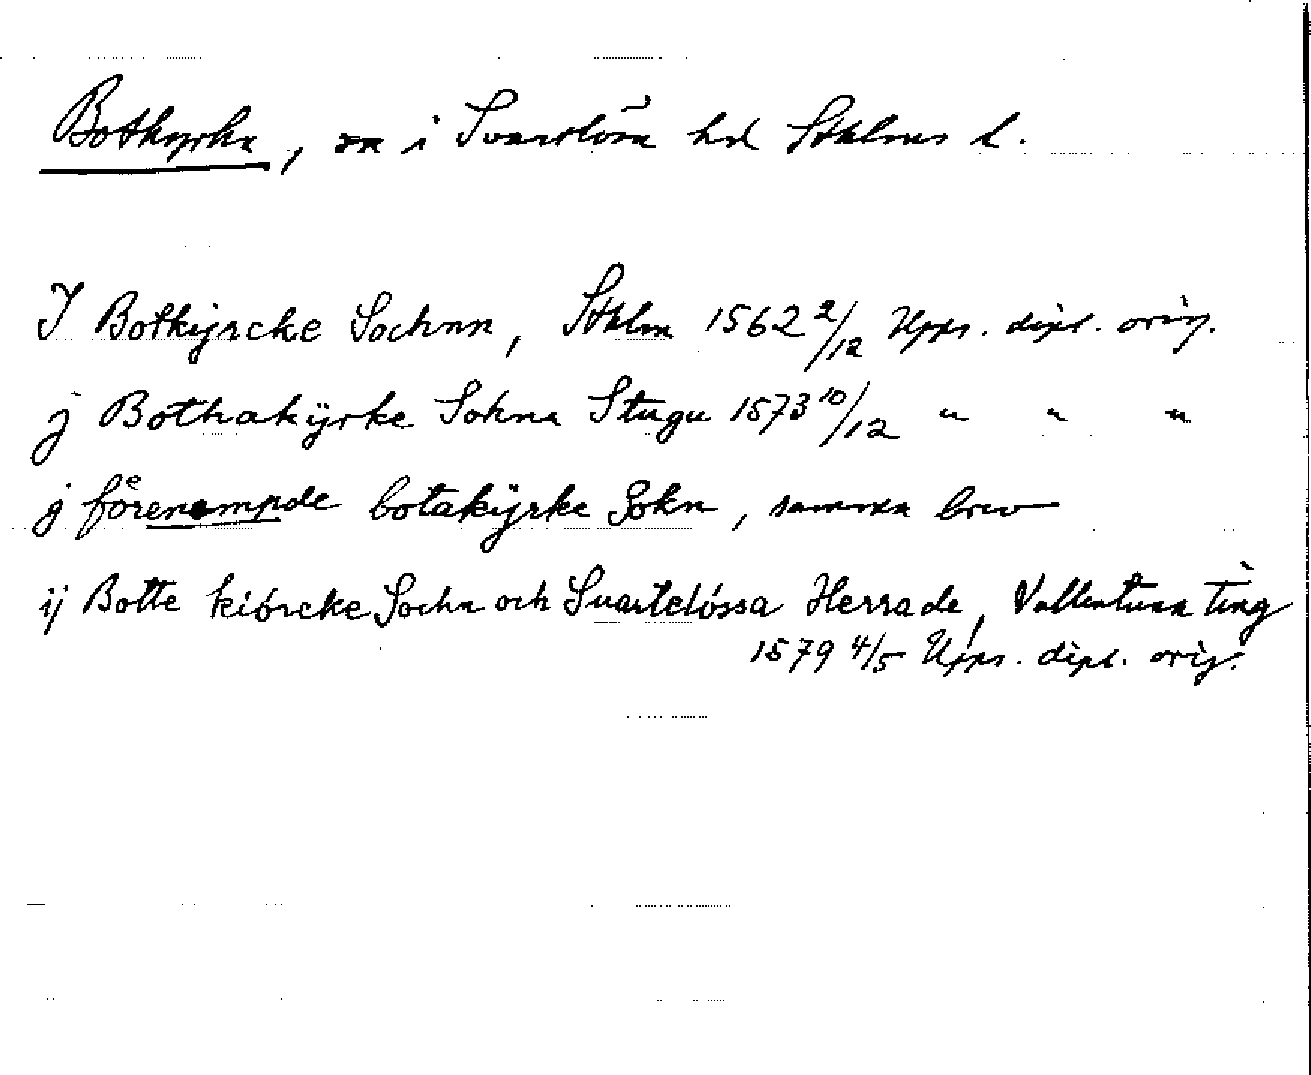 Botkyrka, sn i Svartlösa hd Sthlms l.
J Botkijrcke Sochnn, Sthlm 1562 2/12 Upps. dipl. orig.
j Bothakÿrke Sokna Stugu 1573 10/12 " " "
j förenempde botakÿrke Sokn, samma brev
ij Botte kiörcke Sochn och Suartelössa Herrade, Vallentuna ting
1579 4/5 Upps. dipl. orig.